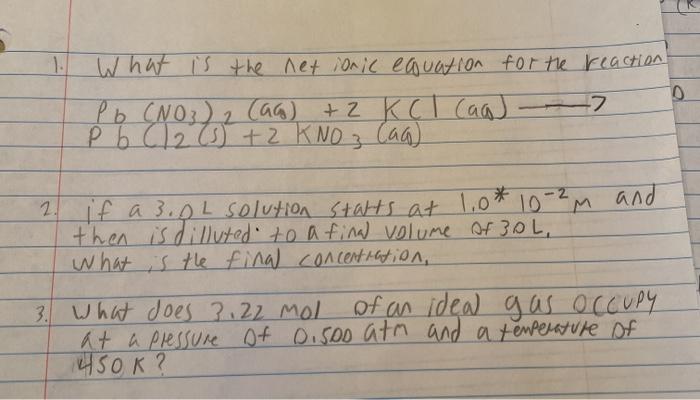 1. What is the net ionic equation for the reaction
Pb (NO3)2 (aq) + 2 KCl (aq) ⟶
PbCl2 (s) + 2 KNO3 (aq)
2. if a 3.0L solution starts at 1.0* 10-2 M and
then is dilluted to a final volume of 30L,
What is the final concentration,
3. What does 3.22 mol of an ideal gas occupy
at a pressure of 0.500 atm and a temperature of
450 K?